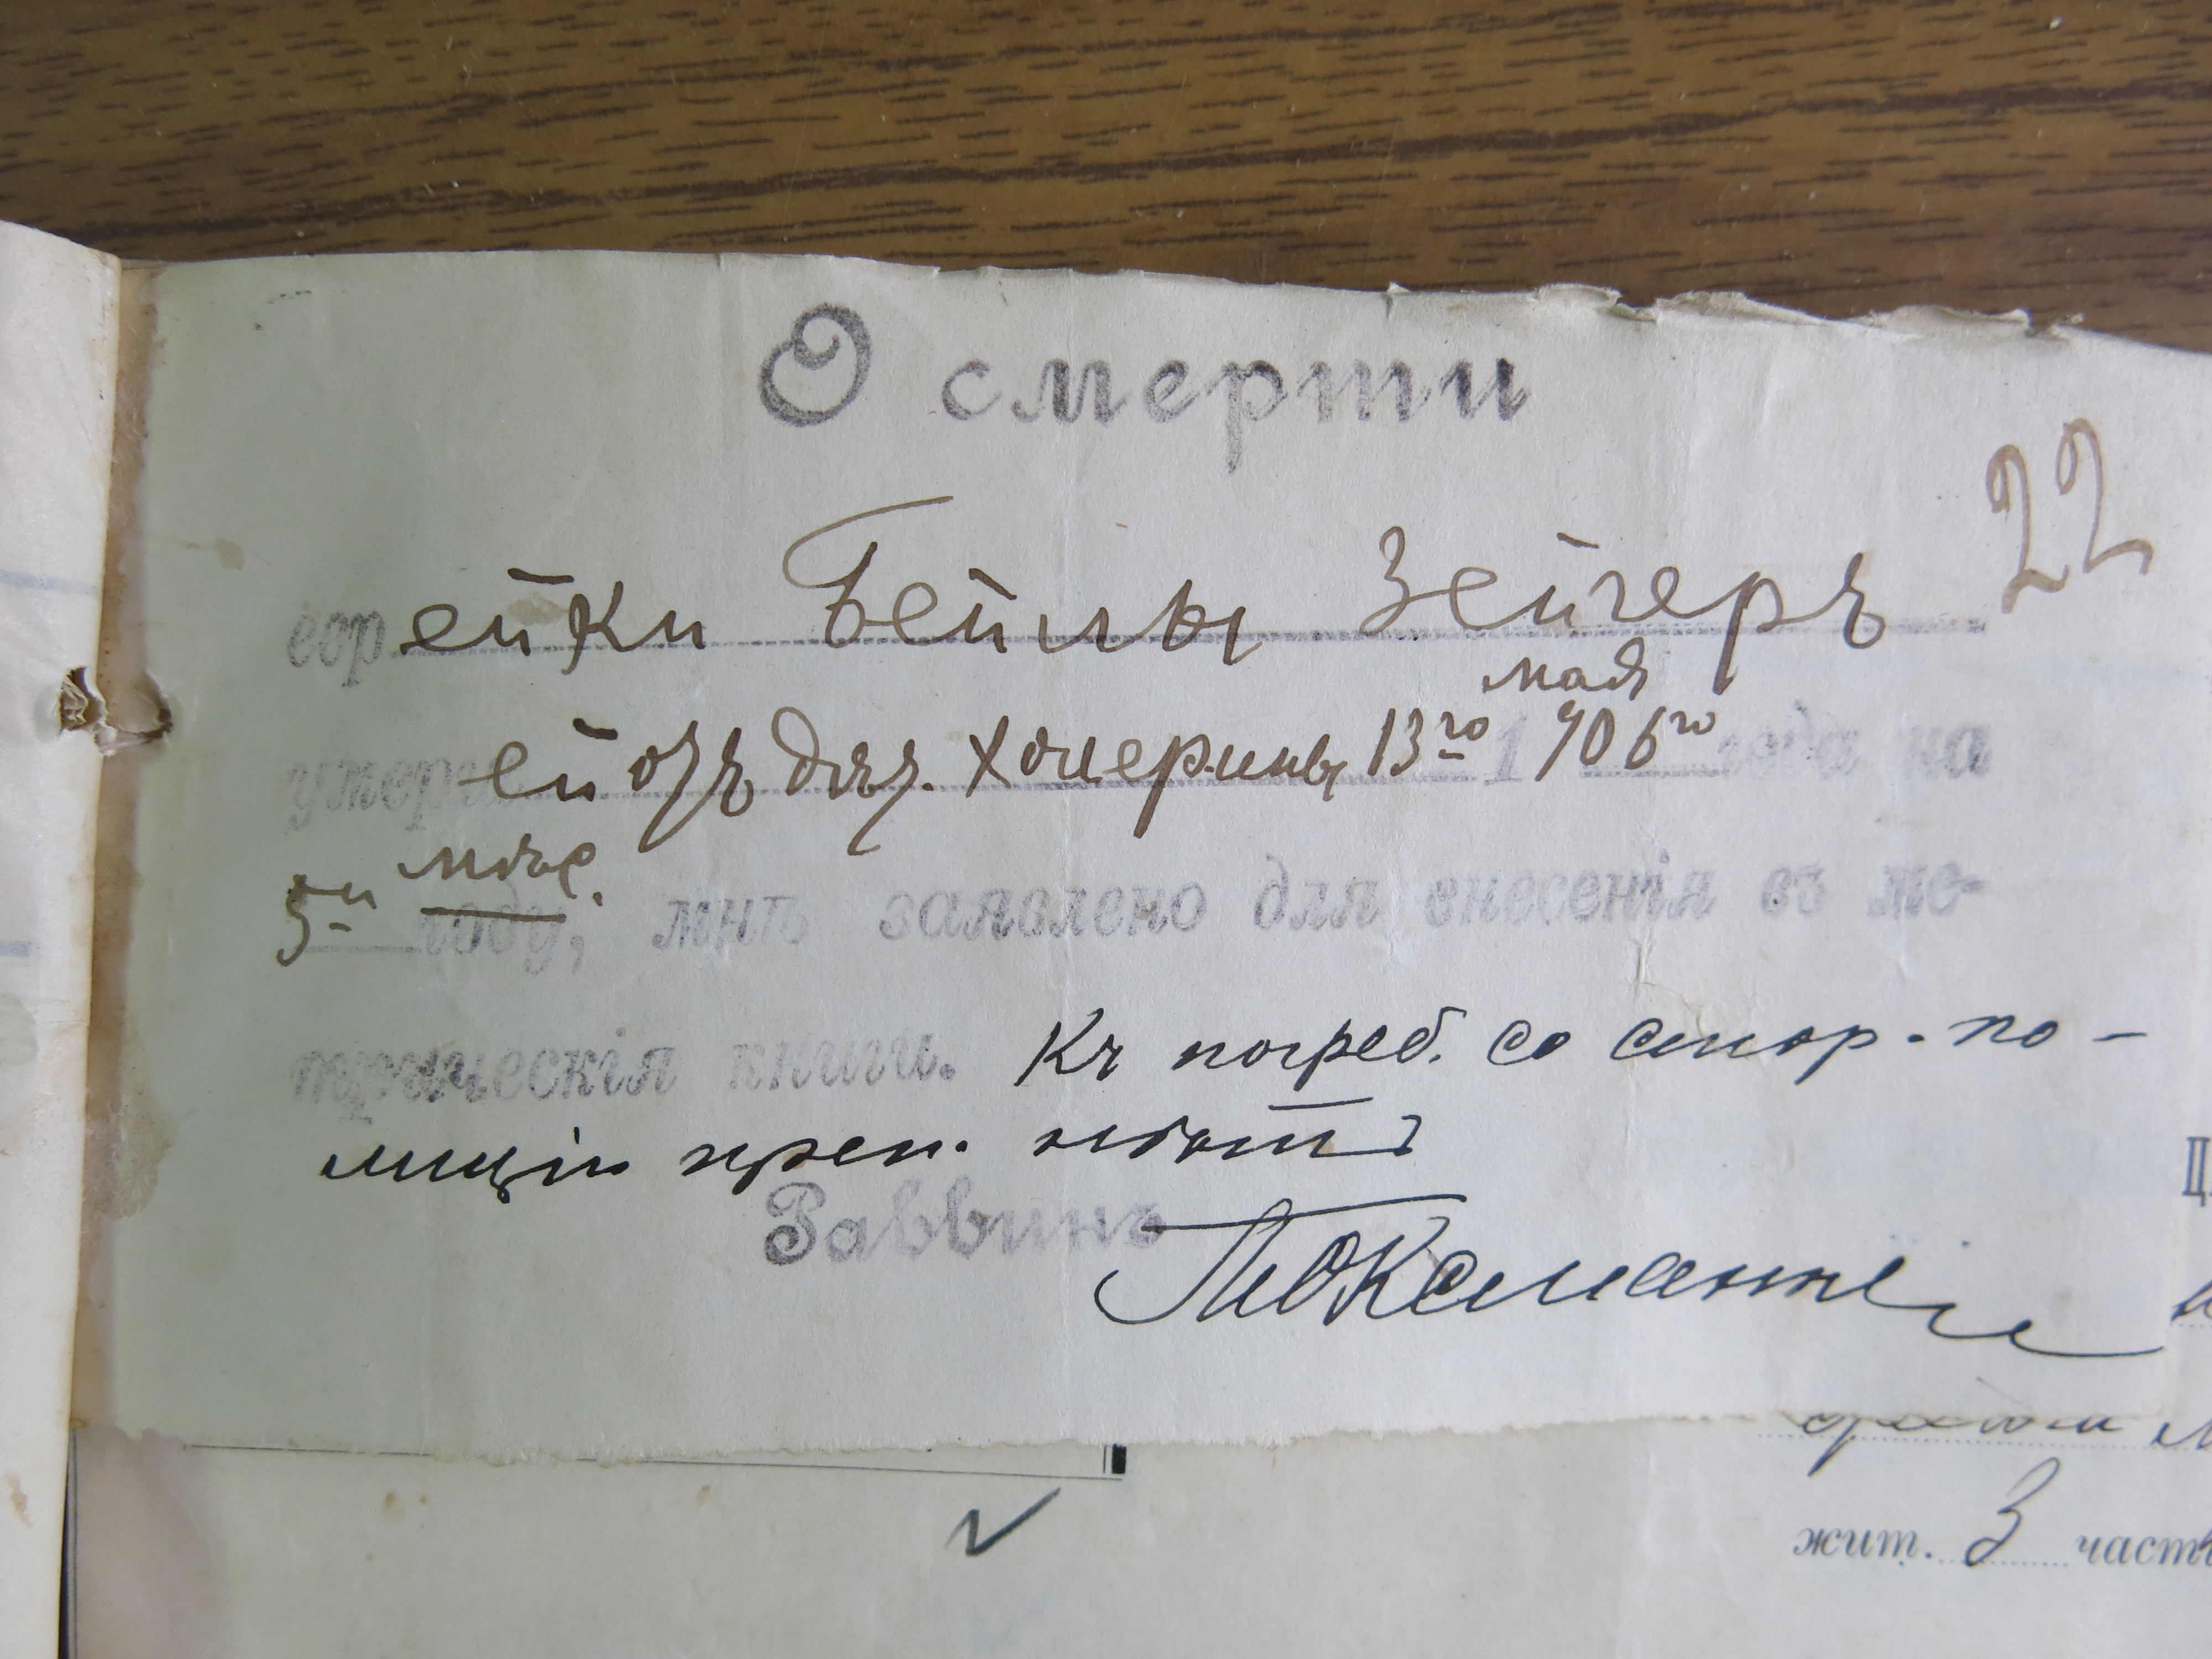 О смерти
22
еврейки Бейлы Зейгеръ
мая
умершей отъ болѣз. холерины 13го 1906го года на
мѣсяц.
5м году, мнѣ заявлено для внесенія въ ме-
трическія книги. Къ погреб. со стор. по-
лиціи преп. нѣтъ
Раввинъ
жит. 3 часть